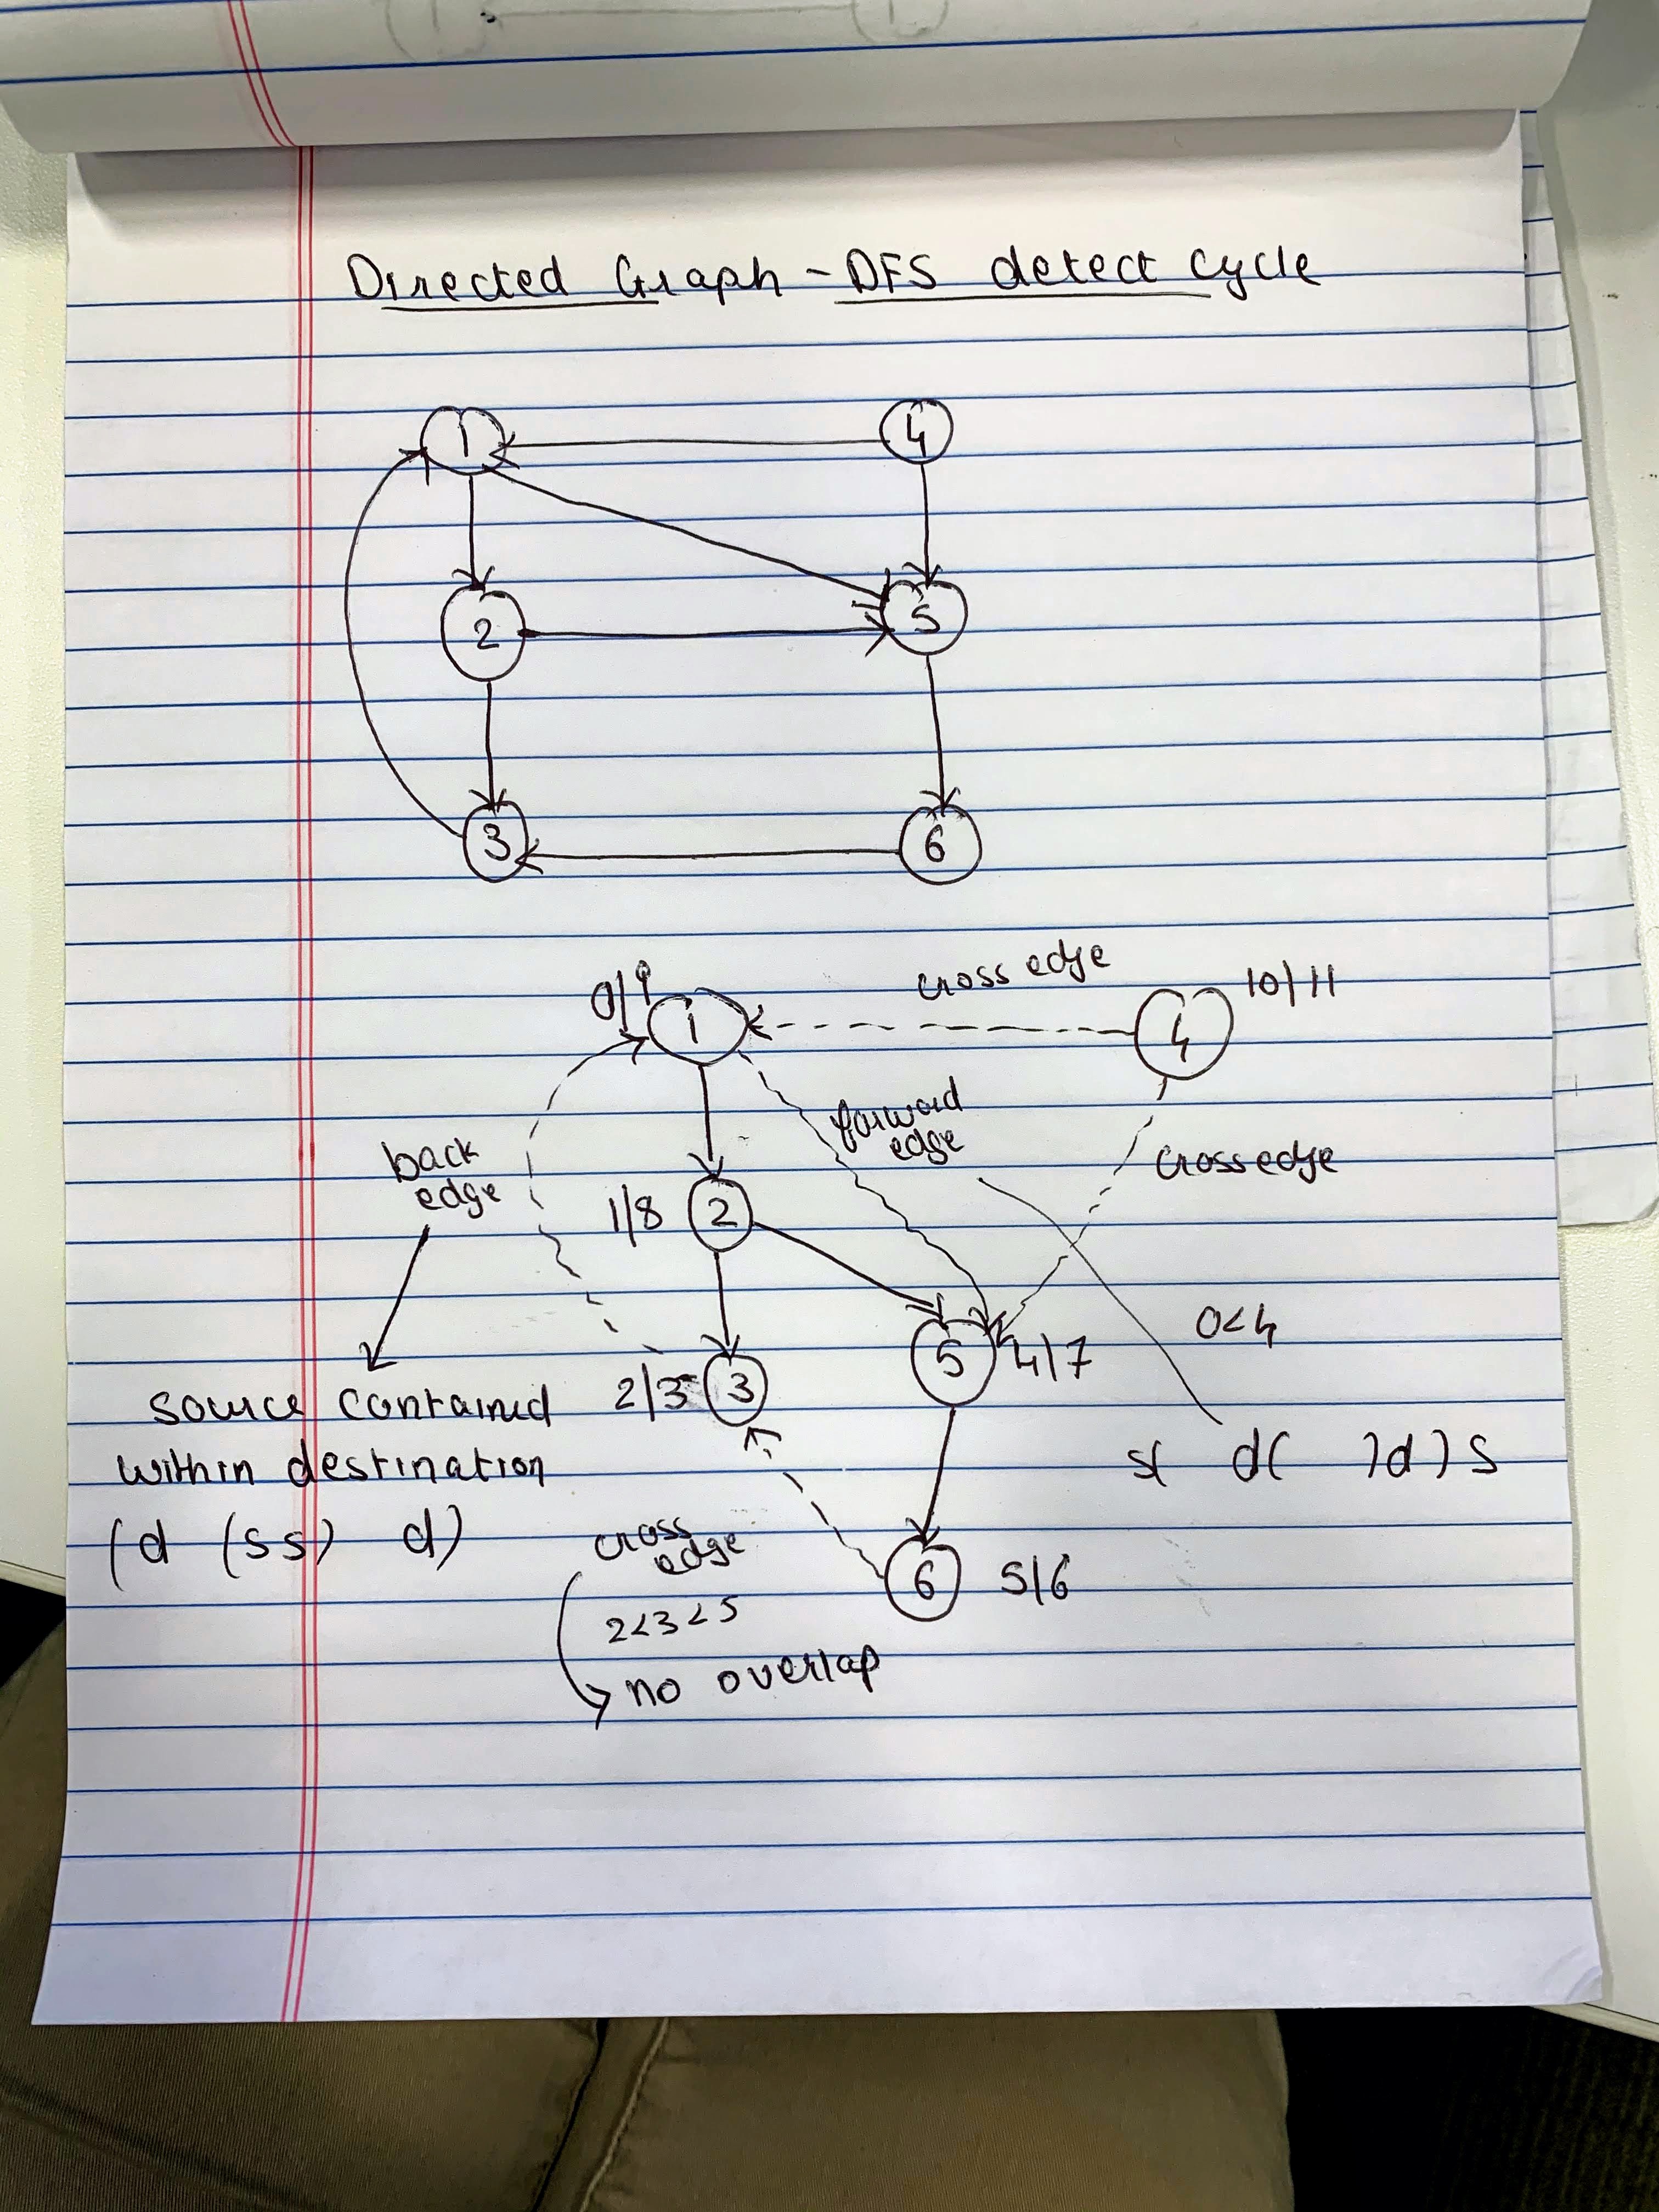 Directed Graph - DFS detect cycle
1 4
2 5
3 6
0/9 1 cross edge 4 10/11
forward
edge
back
edge
cross edge
1/8 2
0<4
5 4/7
2/3 3
source contained
within destination
(d (s s) d)
s( d( )d )s
cross
edge
6 5/6
2<3<5
no overlap